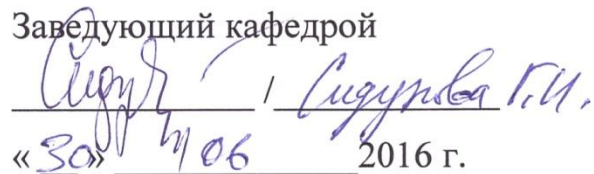 Заведующий кафедрой
/ Сидурова Г.И.
«30» 06 2016 г.